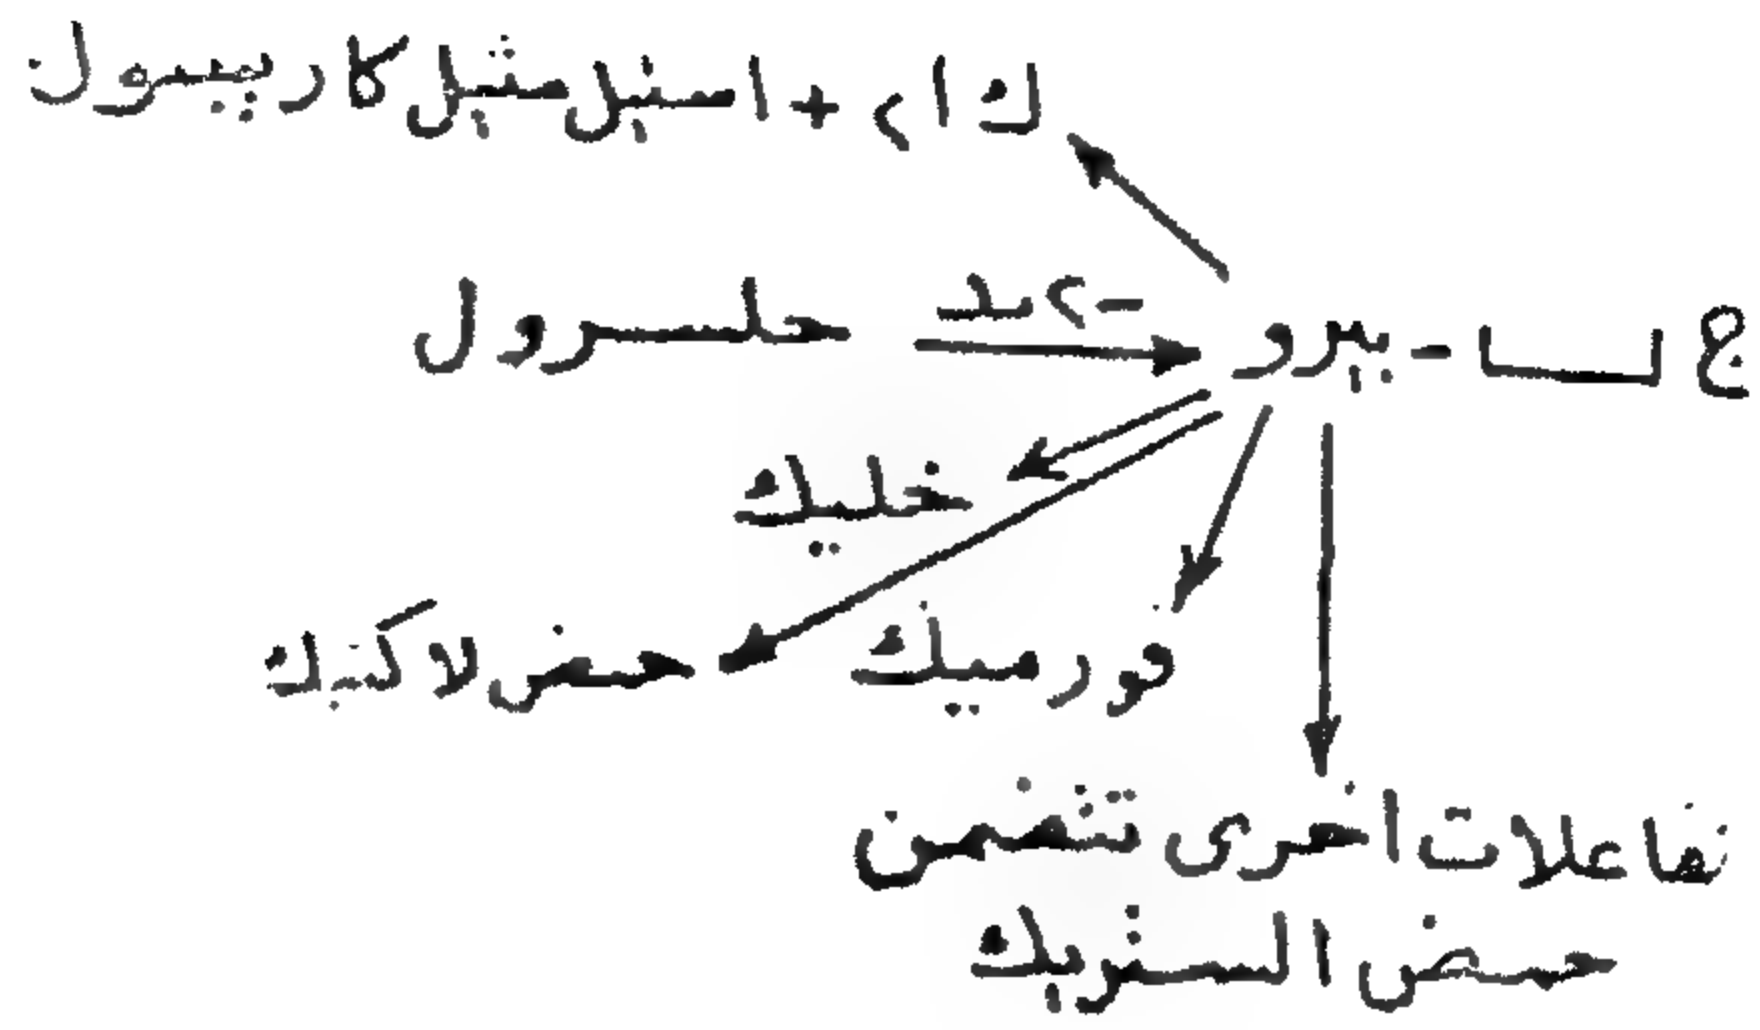 ك ا٢ + استيل مثيل كاربيبنول
جلسرول
-٢يد
ج ـ بيرو
خليك
فورميك
حمض لاكتيك
تفاعلات اخرى تتضمن
حمض الستريك